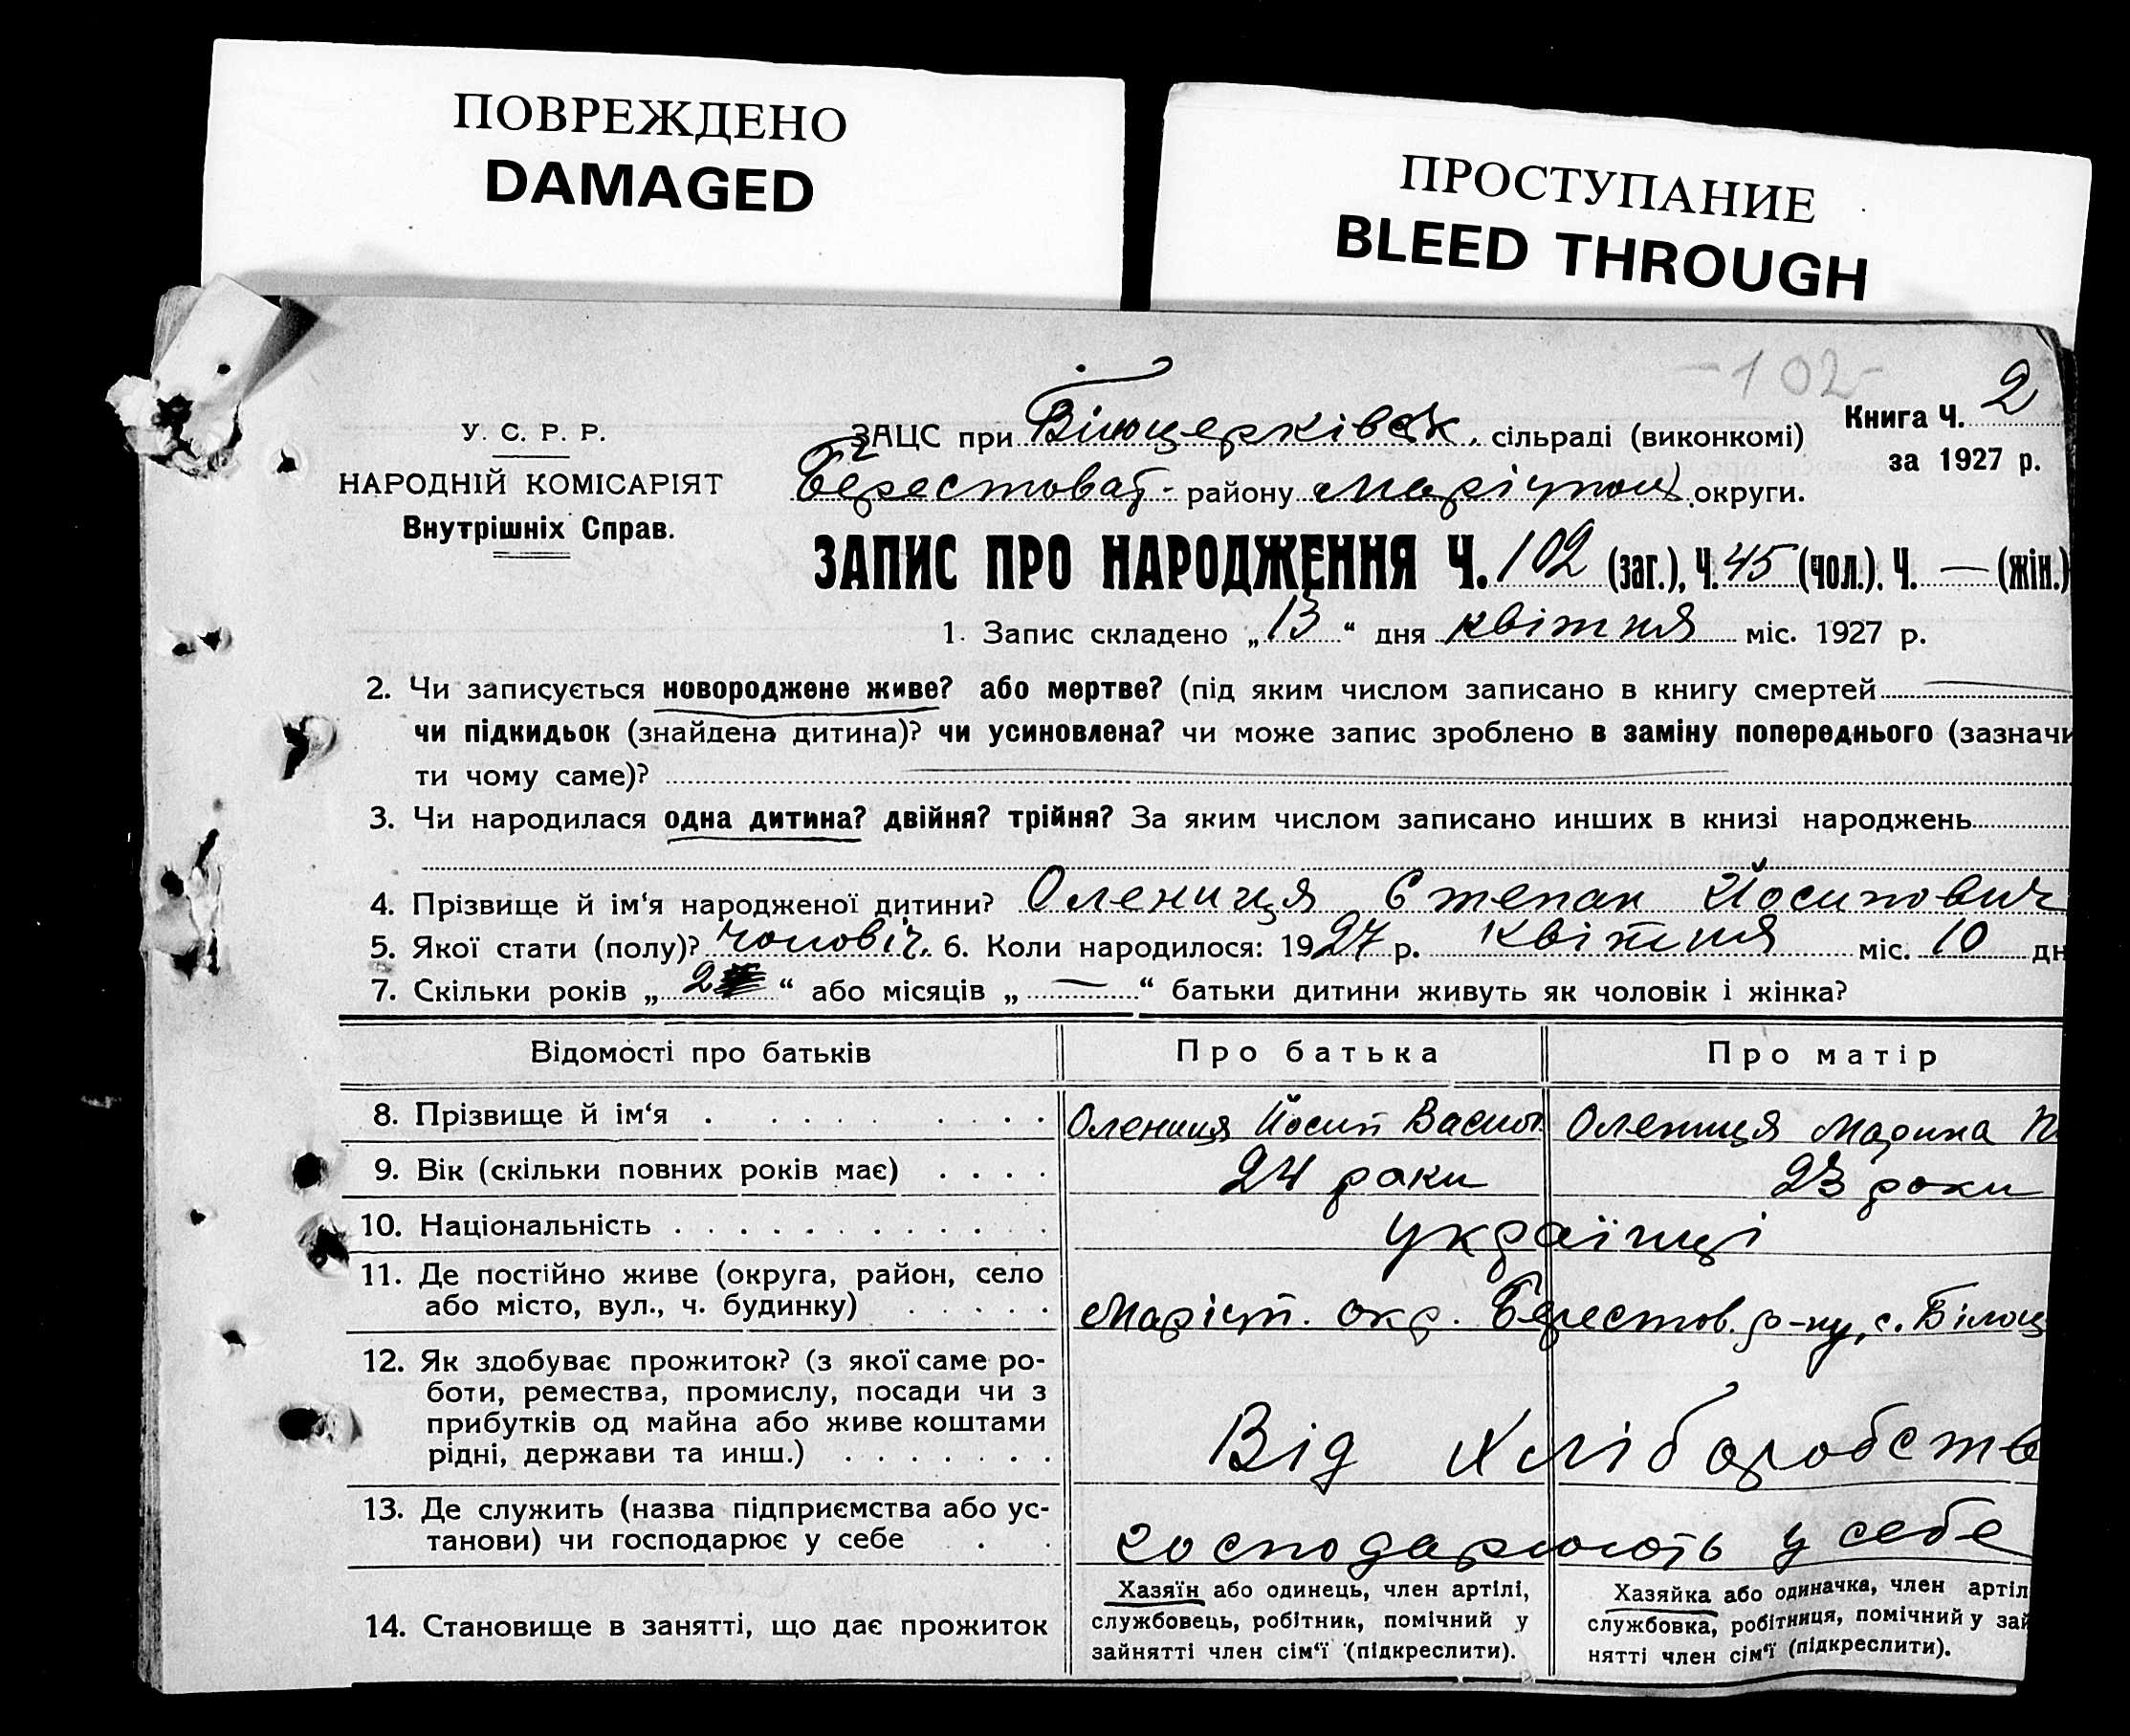 ПОВРЕЖДЕНО
DAMAGED
ПРОСТУПАНИЕ
BLEED THROUGH
-102-
Книга Ч. 2
за 1927 р.
У. С. Р. Р.
НАРОДНІЙ КОМІСАРІЯТ
Внутрішніх Справ.
ЗАЦС при Білоцерківськ. сільраді (виконкомі)
Берестоват- району Маріупол. округи.
ЗАПИС ПРО НАРОДЖЕННЯ Ч. 102 (заг.), Ч. 45 (чол.). Ч. — (жін.)
1. Запис складено „13“ дня квітня міс. 1927 р.
2. Чи записується новороджене живе? або мертве? (під яким числом записано в книгу смертей —
чи підкидьок (знайдена дитина)? чи усиновлена? чи може запис зроблено в заміну попереднього (зазначи
ти чому саме)? —
3. Чи народилася одна дитина? двійня? трійня? За яким числом записано инших в книзі народжень
4. Прізвище й ім‘я народженої дитини? Олениця Степан Йосипович
5. Якої стати (полу)? чоловіч. 6. Коли народилося: 1927 р. квітня міс. 10 дн
7. Скільки років „2“ або місяців „—“ батьки дитини живуть як чоловік і жінка?
Відомості про батьків Про батька Про матір
8. Прізвище й ім‘я Олениця Йосип Васил Олениця Марина П
9. Вік (скільки повних років має) 24 роки 23 роки
10. Національність українці
11. Де постійно живе (округа, район, село
або місто, вул., ч. будинку) Маріуп. окр. Берестов. р-ну, с. Білоц
12. Як здобуває прожиток? (з якої саме ро-
боти, ремества, промислу, посади чи з
прибутків од майна або живе коштами
рідні, держави та инш.) Від хліборобств
13. Де служить (назва підприємства або ус-
танови) чи господарює у себе господарюють у себе
14. Становище в занятті, що дає прожиток
Хазяїн або одинець, член артілі,
службовець, робітник, помічний у
зайнятті член сім‘ї (підкреслити).
Хазяйка або одиначка, член артіл
службовка, робітниця, помічний у зай
нятті член сім‘ї (підкреслити).